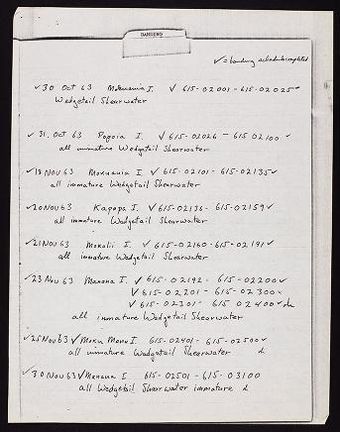 BANDING
✓ = banding schedule completed
✓ 30 Oct 63 Mokuauia I. ✓ 615-02001 - 615-02025 ✓
Wedgetail Shearwater
✓ 31 Oct 63 Popoia I. ✓ 615-02026 - 615 02100 ✓
all immature Wedgetail Shearwater
✓ 18 Nov 63 Mokuauia I. ✓ 615-02101 - 615-02135 ✓
all immature Wedgetail Shearwater
✓ 20 Nov 63 Kapapa I. ✓ 615-02136 - 615-02159 ✓
all immature Wedgetail Shearwater
✓ 21 Nov 63 Mokolii I. ✓ 615-02160 - 615-02191 ✓
all immature Wedgetail Shearwater
✓ 23 Nov 63 Manana I. ✓ 615-02192 - 615-02200 ✓
✓ 615-02201 - 615-02300 ✓
✓ 615-02301 - 615 02400 ✓
all immature Wedgetail Shearwater
✓ 25 Nov 63 ✓ Moku Manu I. 615-02401 - 615-02500 ✓
all immature Wedgetail Shearwater
✓ 30 Nov 63 ✓ Manana I. 615-02501 - 615-03100
all Wedgetail Shearwater immature